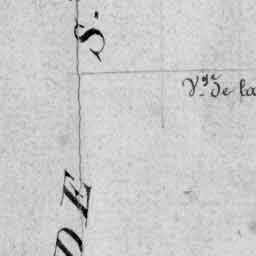 S.
V.ge de la
DE